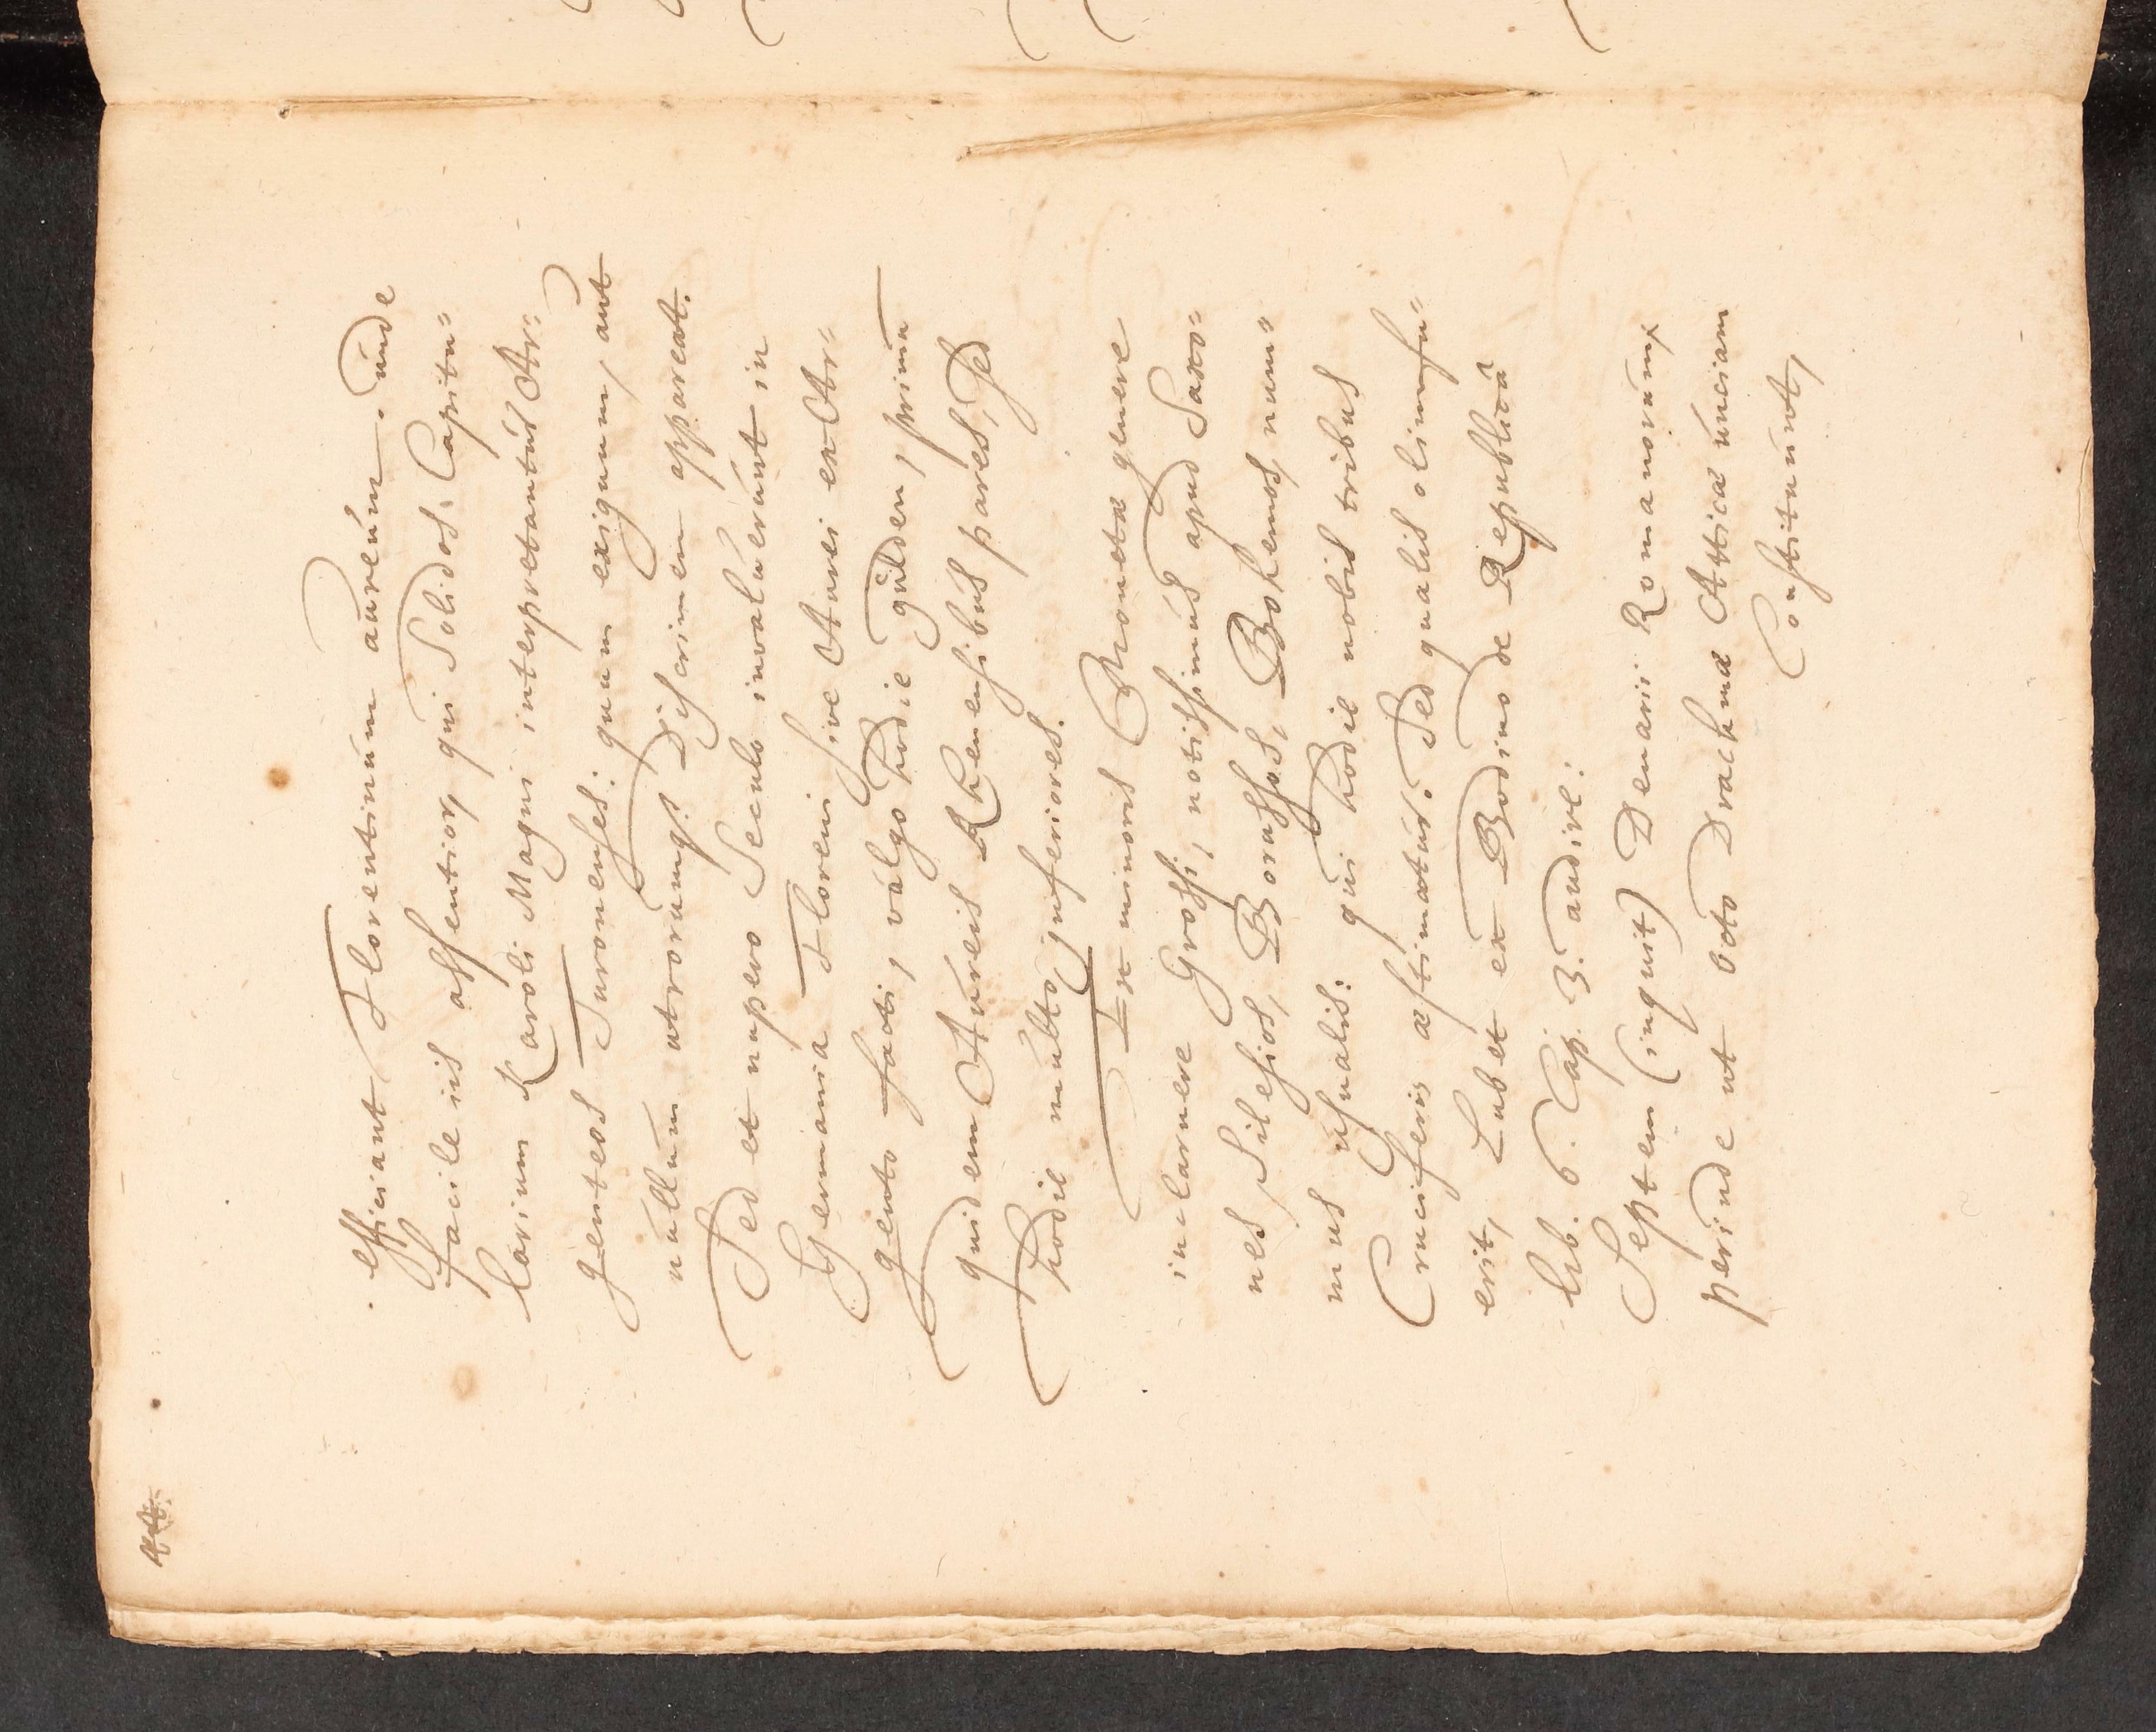 efficiant Florentinum aureum. unde
facile iis assentior, qui Solidos, Capitu=
larium Karoli Magni interpretantur Ar=
genteos Turonenses: quum exiguum, aut
nullum utrorumq; Discrimen appareat.
Sed et nupero Seculo invaluerunt in
Germania Floreni sive Aurei ex Ar=
gento facti, vulgo hodie gulden, primum
quidem Aureis Rhenensibus pares, sed
hodie multo inferiores.
In minoris Monetæ genere
inclaruere Grossi, notissimus apud Saxo=
nes, Silesios, Borussos, Bohemos, num=
mus usualis: qui hodie nobis tribus
Cruciferis æstimatur. Sed qualis olim fu=
erit, Lubet ex Bodino de Republicâ
lib. 6. Cap. 3. audire:
Septem (inquit) Denarii Romanorum,
perinde ut octo Drachmæ Atticæ unciam
Constituunt,